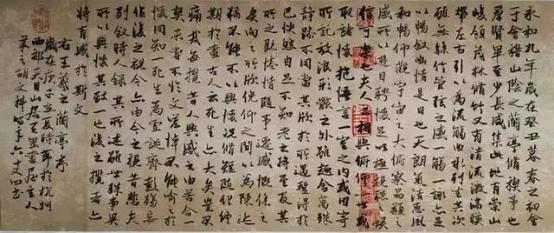 永和九年歲在癸丑暮春之初會
于會稽山陰之蘭亭修稧事也
群賢畢至少長咸集此地有崇山
峻領茂林修竹又有清流激湍暎
帶左右引以為流觴曲水列坐其次
雖無絲竹管弦之盛一觴一詠亦足
以暢敘幽情是日也天朗氣清惠風
和暢仰觀宇宙之大俯察品類之
盛所以遊目騁懷足以極視聽之娛
信可樂也夫人之相與俯仰一世或
取諸懷抱悟言一室之內或因寄
所託放浪形骸之外雖趣舍萬殊
靜躁不同當其欣於所遇蹔得於
己快然自足不知老之將至及其
所之既惓情隨事遷感慨係之
矣向之所欣俛仰之間以為陳迹
猶不能不以之興懷況脩短隨化終
期於盡古人云死生亦大矣豈不
痛哉每攬昔人興感之由若合一
契未嘗不臨文嗟悼不能喻之於
懷固知一死生為虛誕齊彭殤為
妄作後之視今亦由今之視昔悲夫故
列敘時人錄其所述雖世殊事異
所以興懷其致一也後之攬者亦
將有感於斯文
右王羲之蘭亭序
歲在庚子之夏時節於杭州
西郊天目山居主人